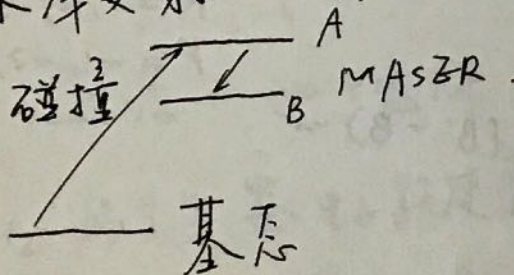 A
碰撞
MASER
B
基态